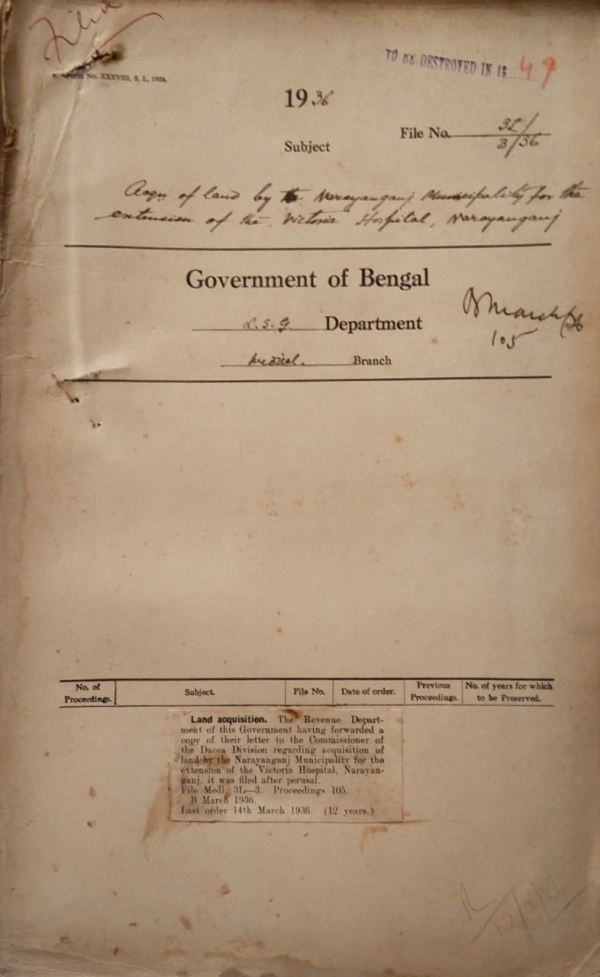 Filed
Form No. XXXVIII, S. L., 1936.
TO BE DESTROYED IN 19 49
1936
File No. 3L/3/36
Subject
Acqn of land by the Narayanganj Municipality for the
extension of the "Victoria" Hospital, Narayanganj
Government of Bengal
L.S.G Department
B March/36
105
Medical. Branch
No. of Proceedings. Subject. File No. Date of order. Previous Proceedings. No. of years for which to be Preserved.
Land acquisition. The Revenue Depart-
ment of this Government having forwarded a
copy of their letter to the Commissioner of
the Dacca Division regarding acquisition of
land by the Narayanganj Municipality for the
extension of the Victoria Hospital, Narayan-
ganj, it was filed after perusal.
File Medl. 3L—3. Proceedings 105.
B March 1936.
Last order 14th March 1936. (12 years.)